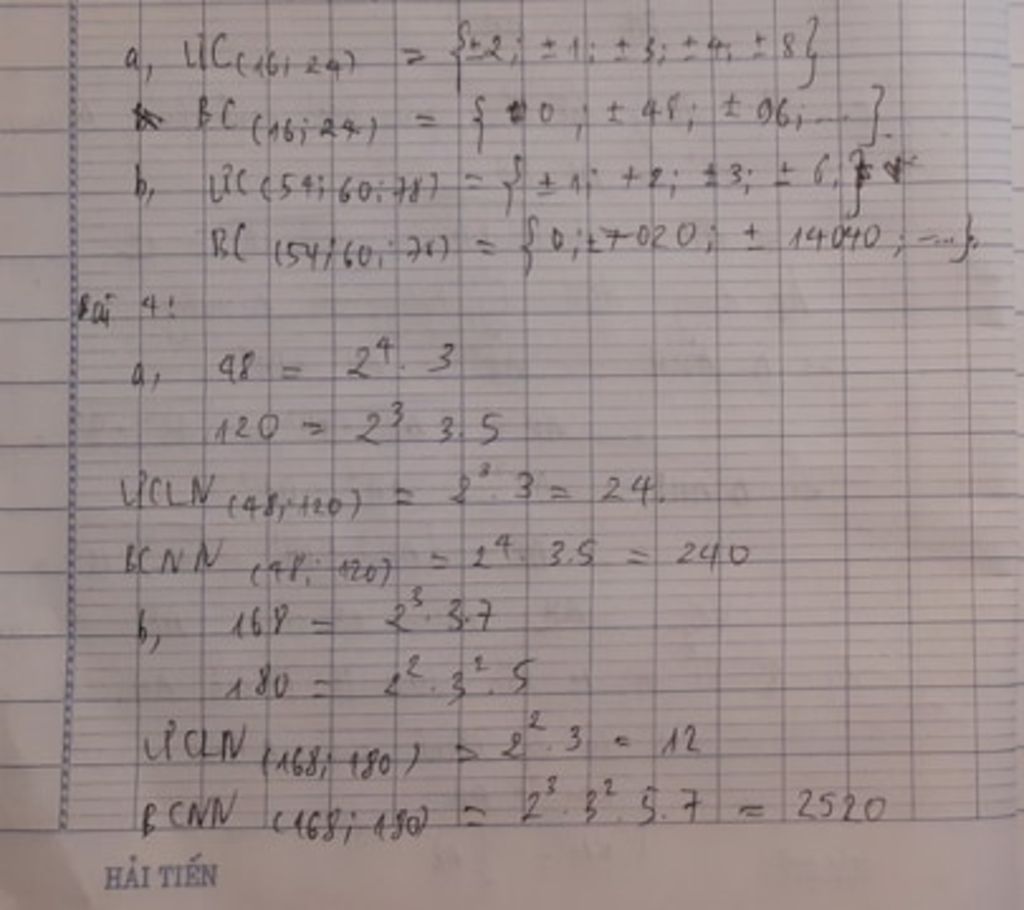 a, ƯC(16; 24) = {±2; ±1; ±3; ±4; ±8}
BC(16; 24) = { 0 ; ±48; ±96; ... }.
b, ƯC(54; 60; 78) = { ±1; +2; ±3; ±6 }
BC (54; 60; 78) = { 0; ±7020; ± 14040; ...}.
Bài 4:
a, 48 = 2⁴. 3
120 = 2³ 3.5
ƯCLN (48; 120) = 2³. 3 = 24.
BCNN (48; 120) = 2⁴. 3.5 = 240
b, 168 = 2³. 3.7
180 = 2². 3². 5
ƯCLN (168; 180) = 2². 3 = 12
BCNN (168; 180) = 2³. 3². 5. 7 = 2520
HẢI TIẾN